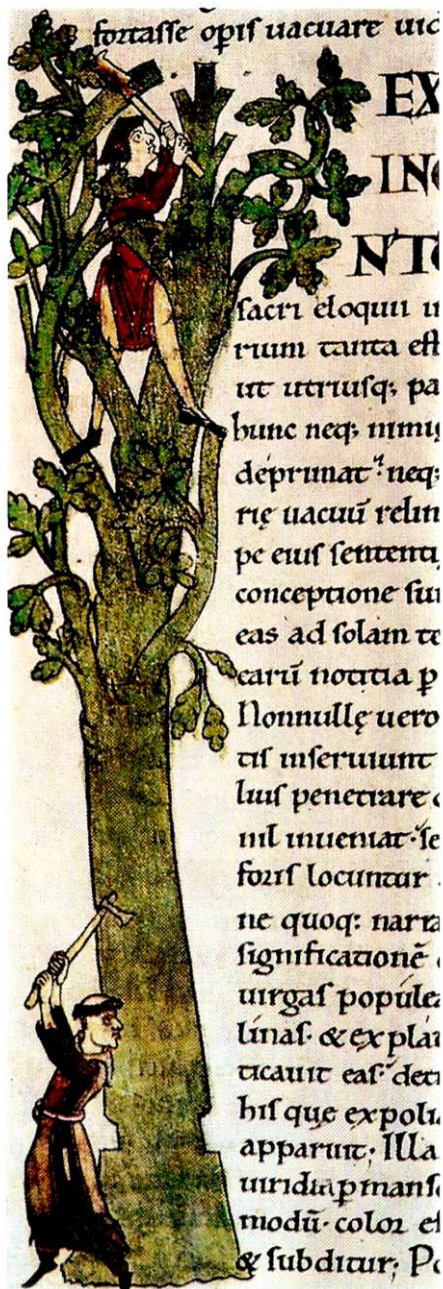 fortasse opis uacuare uic
EX
IN
NTO
sacri eloquii in
rium tanta est
ut utriusq; pa
hunc neq; nimi
deprimat neq;
rię uacuū relin
pe eius sententi
conceptione sun
eas ad solam te
carū notitia p
Nonnullę uero
tis inseruiunt
lius penetrare
nil inueniat se
foris locuntur
ne quoq: narra
significationē
uirgas populea
linas· & ex plan
ticauit eas· detr
his que expolia
apparuit; Illa
uiridia pmans
modū· color ef
& subditur; Po